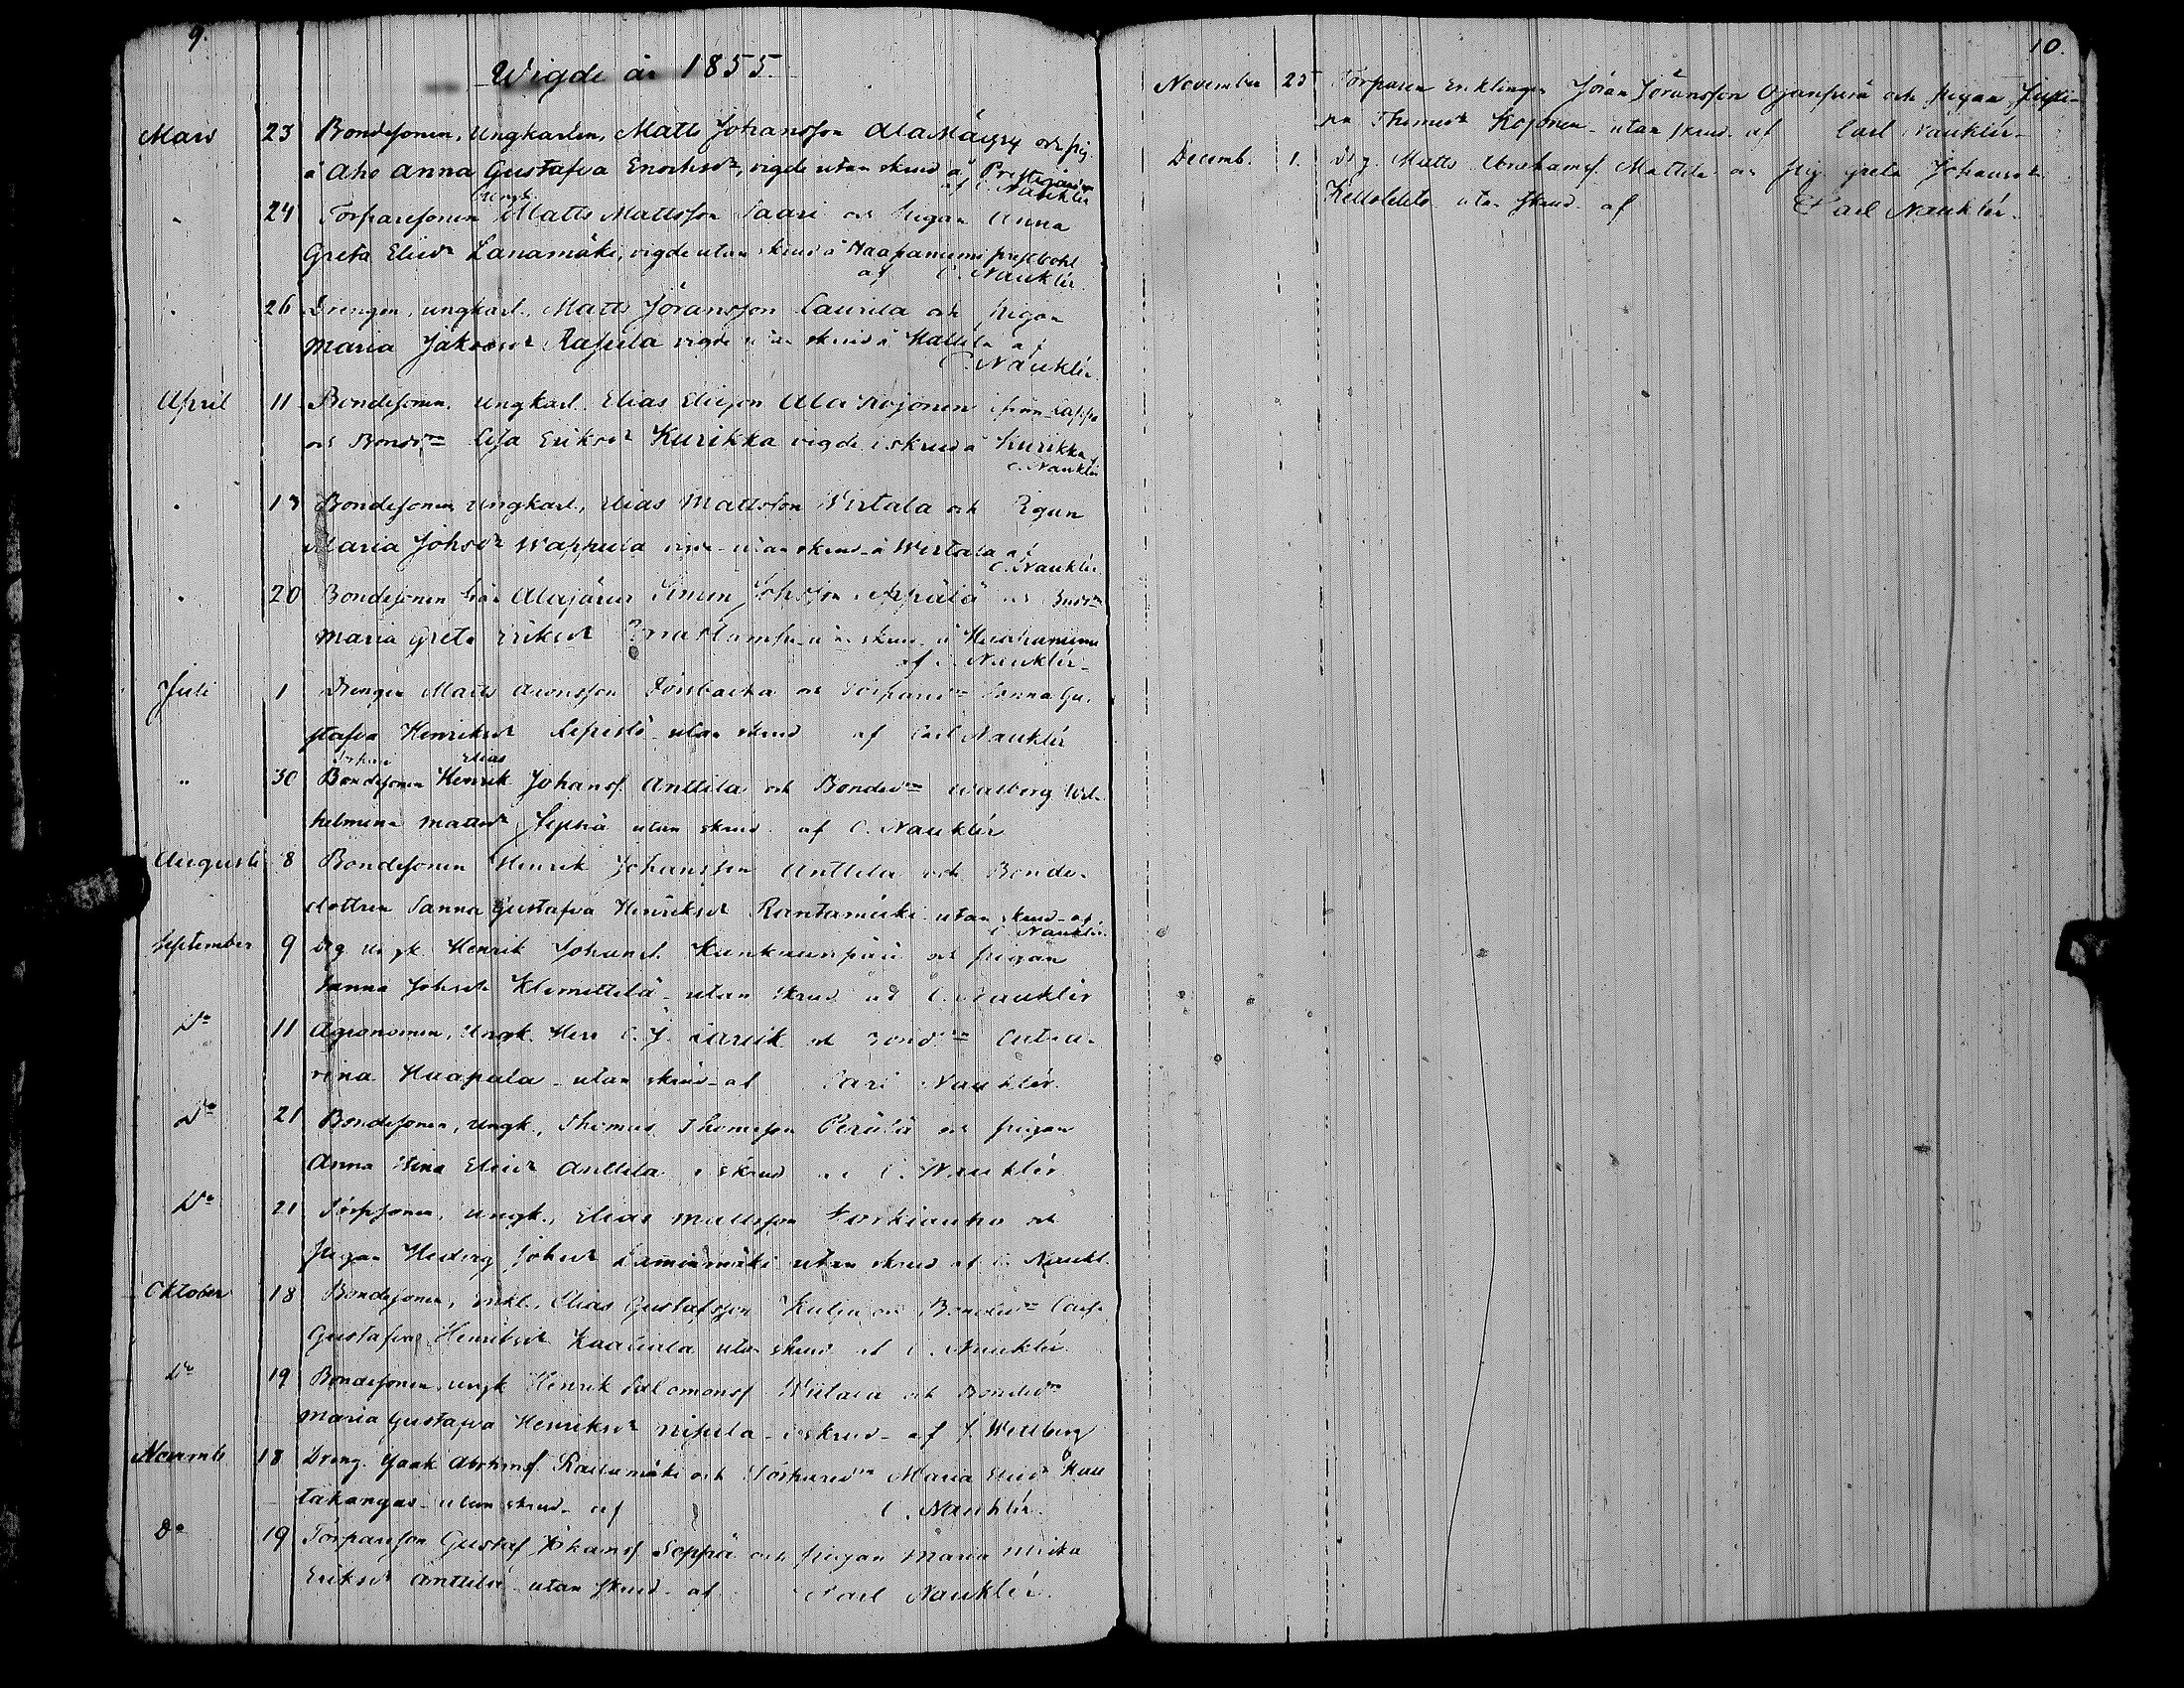 9.
Wigde år 1855.
Mars 23 Bondesonen, Ungkarlen, Matts Johansson Ala Mäyry och pig.
å Aho Anna Gustafva Enochsdr, vigde utan skrud å Prestgården
af C. Nauklér
Ungk.
" 24 Torparesonen Matts Mattsson Saari och Pigan Anna
Greta Eliedr Lanamäki, vigde utan skrud å Haapaniemi prestbohl
af C. Nauklér.
" 26 Drengen, ungkarl., Matts Jöransson Laurila och Pigan
Maria Jakobsdr Rajula vigde utan skrud å Mattila af
C. Nauklér.
April 11 Bondesonen, Ungkarl. Elias Eliesson Ala Kojonen ifrån Lappo
och Bondr Lisa Eriksdr Kurikka vigde i skrud å Kurikka
C. Nauklér
" 13 Bondesonen Ungkarl., Elias Mattsson Wirtala och Pigan
Maria Johsdr Wappula vigde utan skrud å Wirtala af
C. Nauklér.
" 20 Bondesonen från Alajärvi Simon Johsson och
Maria Greta Eriksdr utan skrud å Haapaniemi
af C. Nauklér
Juli 1 Drengen Matts Aronsson och Torparedr Sanna Gu-
stafva Henriksdr Lepistö utan skrud af Carl Nauklér
Elias
" 30 Bondesonen Henrik Johanss. Anttila och Bondedr Walborg Wil-
helmina Mattsdr Seppä utan skrud af C. Nauklér
Augusti 8 Bondesonen Henrik Johansson Anttila och Bonde-
dottren Sanna Gustafva Henriksdr Rantamäki utan skrud af
C. Nauklér.
September 9 Drg Ungk. Henrik Johanss. Kankaanpää och pigan
Sanna Johsdr Klemettilä utan skrud af C. Nauklér
Do 11 Agronomen, Ungk. Herr C. J. och Bondr Catha-
rina Haapala utan skrud af Carl Nauklér.
Do 21 Bondesonen, Ungk., Thomas Thomsson Perälä och pigan
Anna Stina Eliedr Anttila i skrud af C. Nauklér
Do 21 Torpsonen, Ungk., Elias Mattsson och
Pigan Hedvig Johsdr Lamminmäki utan skrud af C. Naukl.
Oktober 18 Bondesonen, Enkl., Elias Gustafsson och Bondedr
Gustafva Henriksdr Kaaliala utan skrud af C. Nauklér.
Do 19 Bondesonen, ungk Henrik Salomonss. Wiitala och Bondedr
Maria Gustafva Henriksdr i skrud af J. Wellberg
Novemb. 18 Dreng. Isaak Abrahmss. och Torparedr Maria Eliedr Hau
takangas utan skrud af C. Nauklér.
Do 19 Torpareson Gustaf Johanss Seppä och pigan Maria Ulrika
Eriksdr Anttila utan skrud af Carl Nauklér.
10.
November 25 Torparen Enklingen Jöran Jöransson Ojanperä och pigan Justi-
na Thomasdr Kojonen utan skrud af Carl Nauklér
Decemb. 1. Drg. Matts Abrahamss. Mattila och pig. Greta Johansdr
utan skrud af Carl Nauklér.